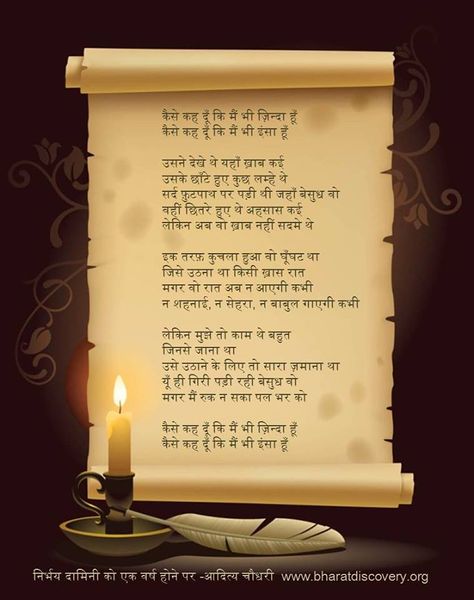 कैसे कह दूँ कि मैं भी ज़िन्दा हूँ
कैसे कह दूँ कि मैं भी इंसा हूँ
उसने देखे थे यहाँ ख़ाब कई
उसके छाँटे हुए कुछ लम्हे थे
सर्द फ़ुटपाथ पर पड़ी थी जहाँ बेसुध वो
वहीं छितरे हुए थे अहसास कई
लेकिन अब वो ख़ाब नहीं सदमे थे
इक तरफ़ कुचला हुआ वो घूँघट था
जिसे उठना था किसी ख़ास रात
मगर वो रात अब न आएगी कभी
न शहनाई, न सेहरा, न बाबुल गाएगी कभी
लेकिन मुझे तो काम थे बहुत
जिनसे जाना था
उसे उठाने के लिए तो सारा ज़माना था
यूँ ही गिरी पड़ी रही बेसुध वो
मगर मैं रुक न सका पल भर को
कैसे कह दूँ कि मैं भी ज़िन्दा हूँ
कैसे कह दूँ कि मैं भी इंसा हूँ
निर्भय दामिनी को एक वर्ष होने पर -आदित्य चौधरी www.bharatdiscovery.org